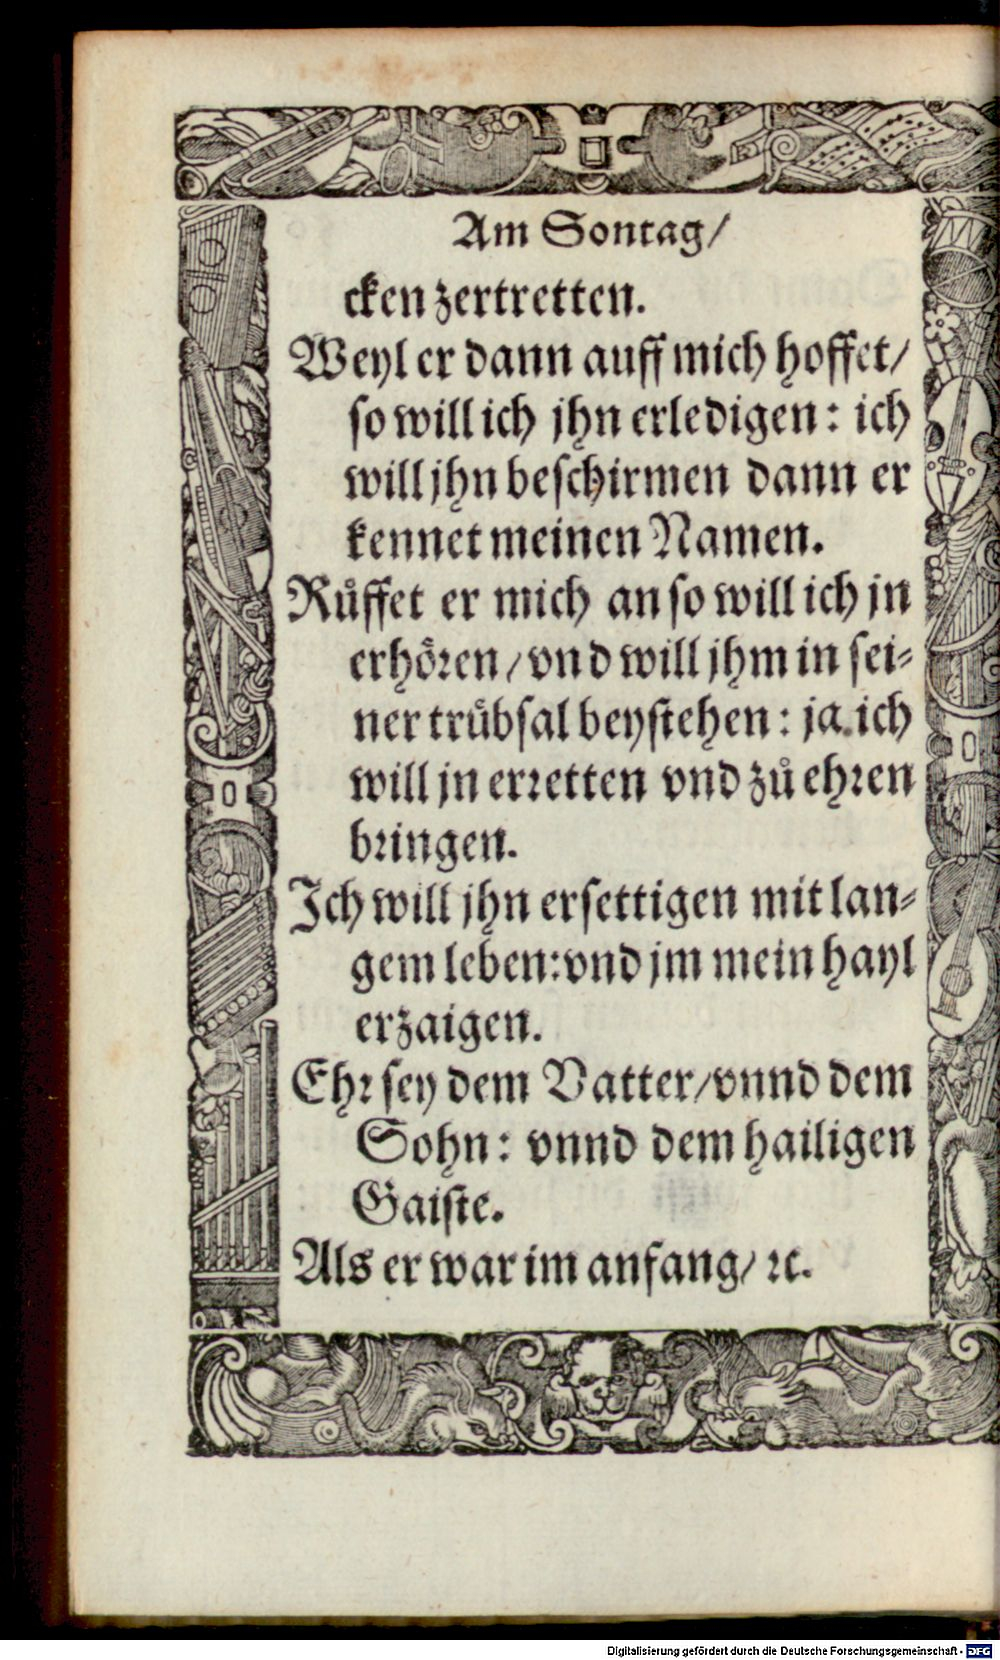 Am Sontag/
cken zertretten.
Weyl er dann auff mich hoffet/
so will ich jhn erledigen: ich
will jhn beschirmen dann er
kennet meinen Namen.
Růffet er mich an so will ich jn
erhören/ vnd will jhm in sei-
ner trůbsal beystehen: ja ich
will jn erretten vnd zů ehren
bringen.
Ich will jhn ersettigen mit lan-
gem leben: vnd jm mein hayl
erzaigen.
Ehr sey dem Vatter/ vnnd dem
Sohn: vnnd dem hailigen
Gaiste.
Als er war im anfang/ ꝛc.
Digitalisierung gefördert durch die Deutsche Forschungsgemeinschaft - DFG